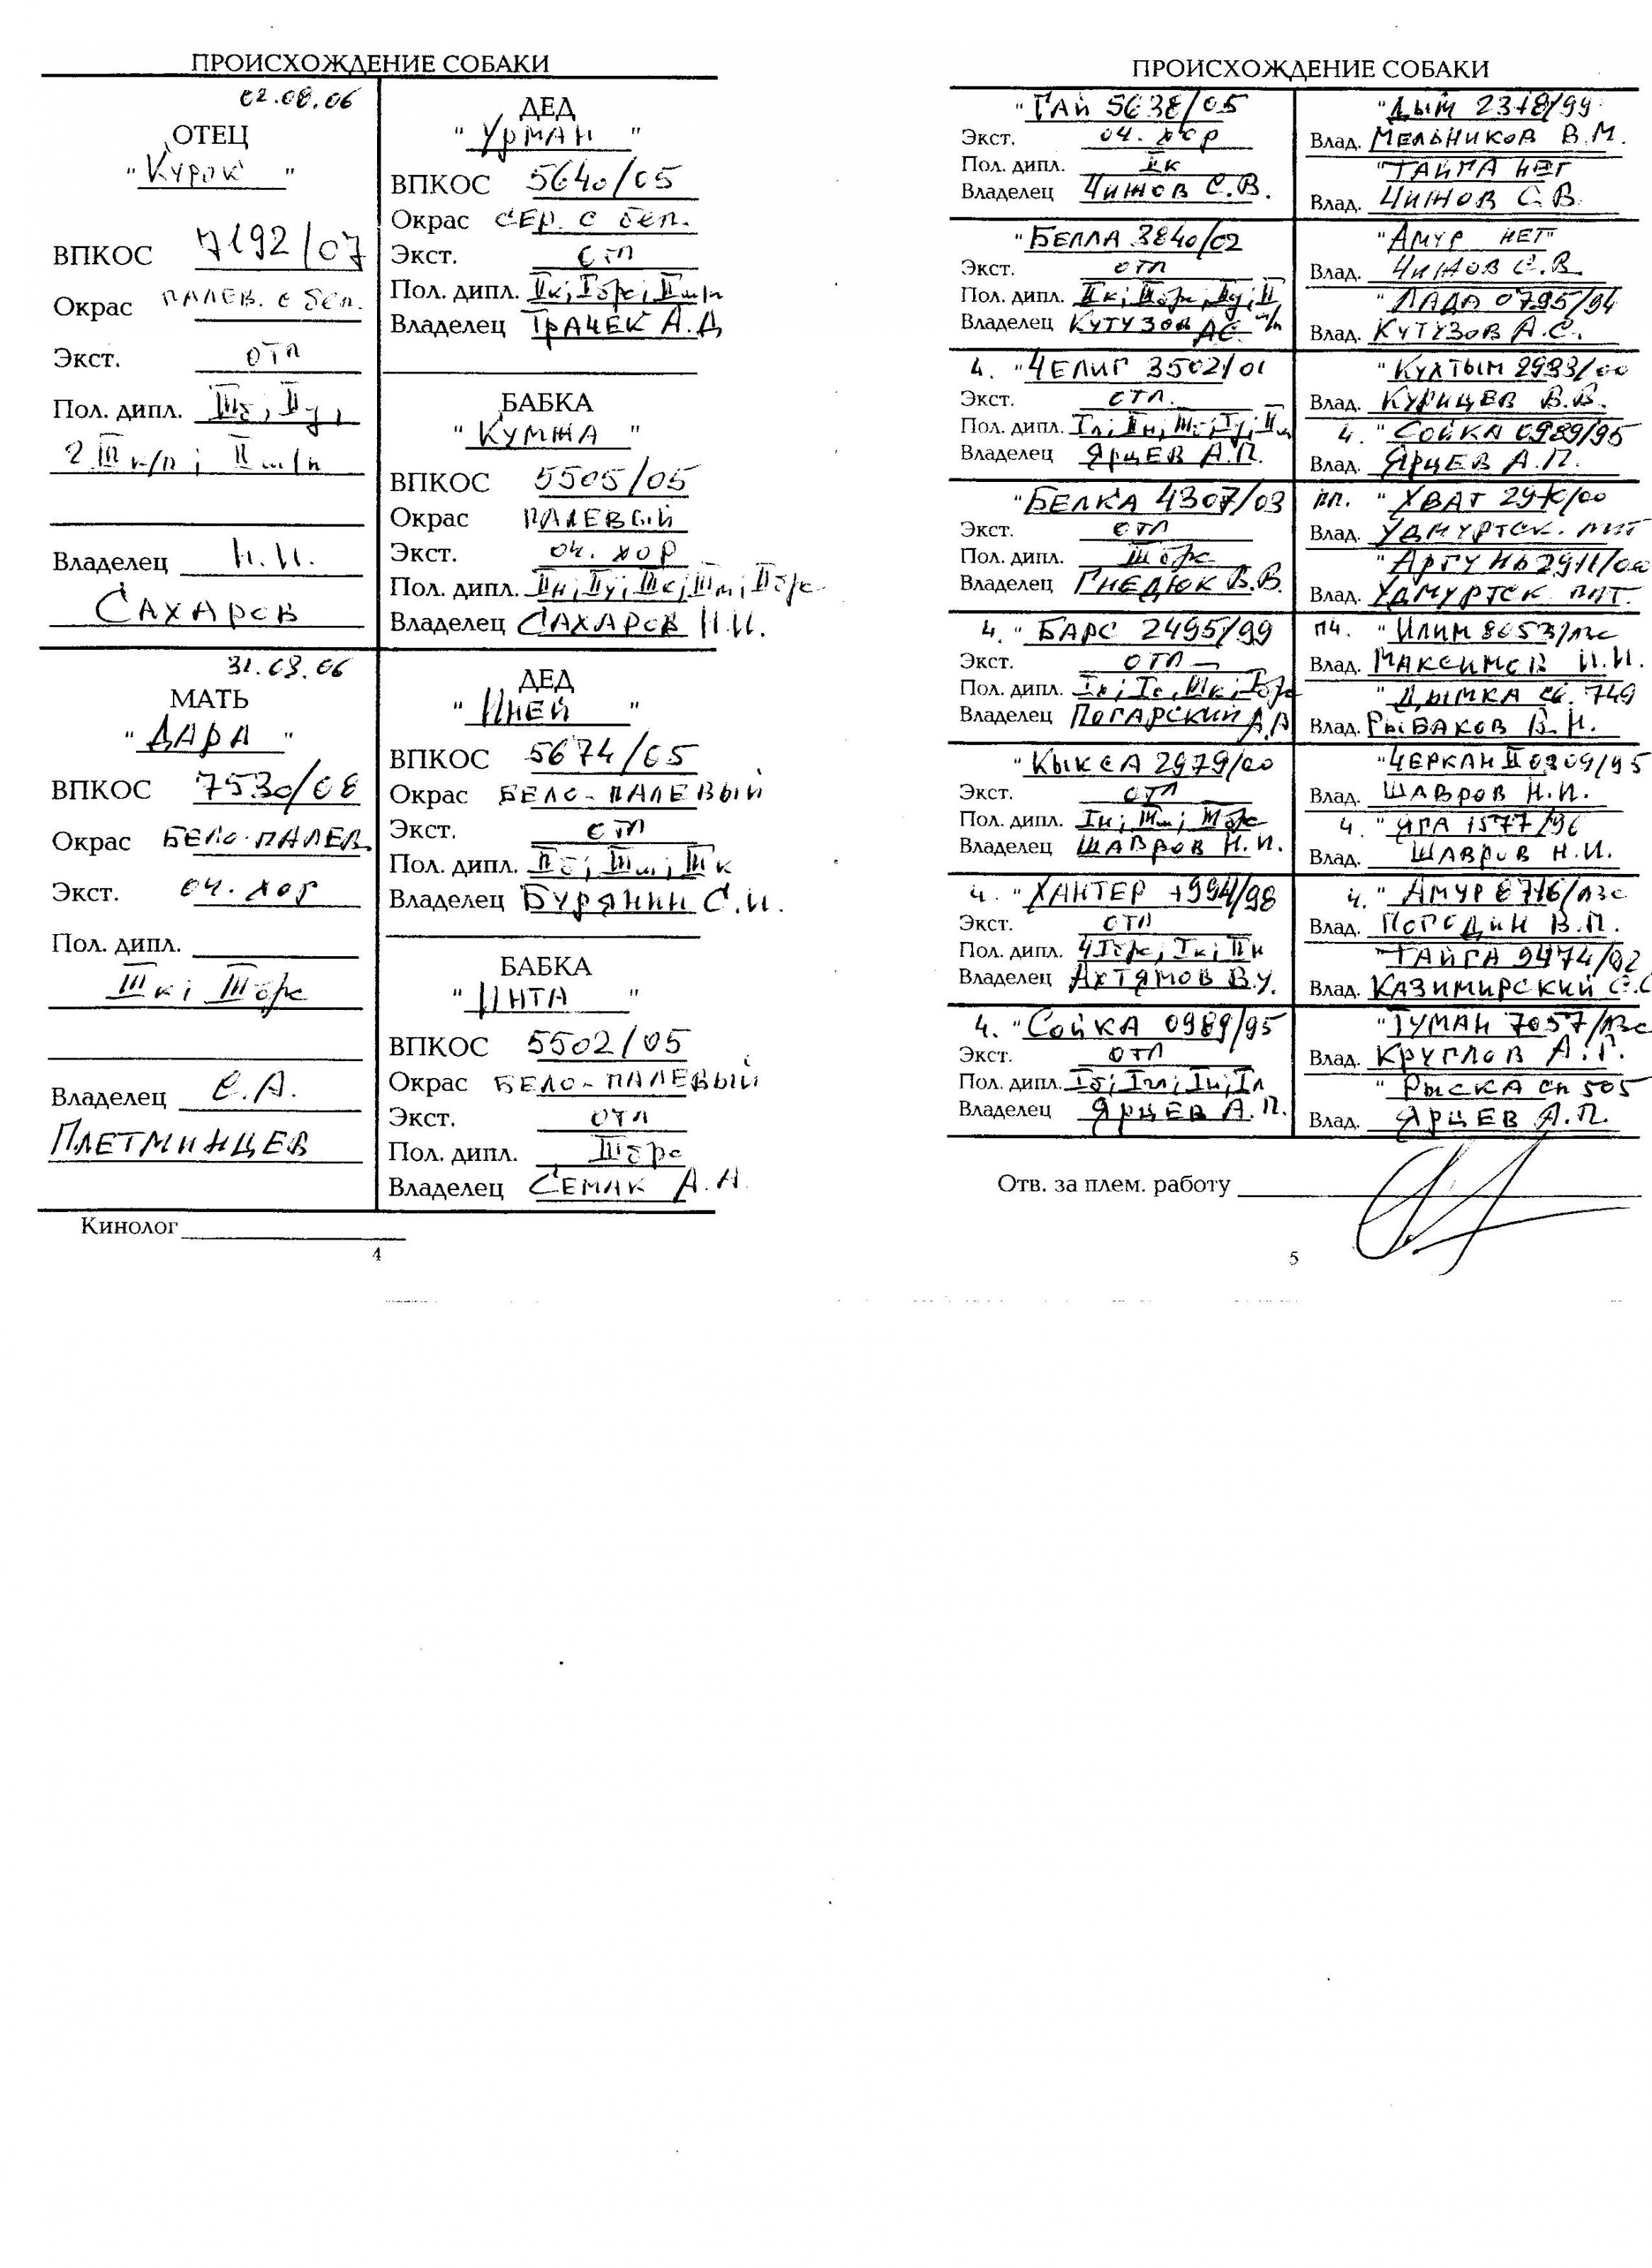 ПРОИСХОЖДЕНИЕ СОБАКИ
02.08.06
ОТЕЦ
"Курок"
ВПКОС 7192/07
Окрас ПАЛЕВ. с бел.
Экст. отл
Пол. дипл. IIIб, IIу,
2 III к/п; II ш/п
Владелец Н.И.
САХАРОВ
ДЕД
"УРМАН"
ВПКОС 5640/05
Окрас СЕР. с бел.
Экст. отл
Пол. дипл. IIк; Iбрс; IIш/п
Владелец ТРАЧЕК А.Д
БАБКА
"КУМЖА"
ВПКОС 5505/05
Окрас ПАЛЕВЫЙ
Экст. оч. хор
Пол. дипл. IIн; IIу; IIIк; IIIл; IIбрс
Владелец САХАРОВ Н.И.
31.03.06
МАТЬ
"ДАРА"
ВПКОС 7530/08
Окрас БЕЛО-ПАЛЕВ.
Экст. оч. хор
Пол. дипл.
IIIк; IIIбрс
Владелец С.А.
ПЛЕТМИНЦЕВ
ДЕД
"ИНЕЙ"
ВПКОС 5674/05
Окрас БЕЛО-ПАЛЕВЫЙ
Экст. отл
Пол. дипл. IIб; IIIш; IIIк
Владелец БУРЯНИН С.И.
БАБКА
"ИНТА"
ВПКОС 5502/05
Окрас БЕЛО-ПАЛЕВЫЙ
Экст. отл
Пол. дипл. IIIбрс
Владелец СЕМАК А.А
Кинолог
4
ПРОИСХОЖДЕНИЕ СОБАКИ
"ГАЙ 5638/05
Экст. оч. хор
Пол. дипл. IIк
Владелец ЧИЖОВ С.В.
"ДЫМ 2378/99
Влад. МЕЛЬНИКОВ В.М.
"ТАЙГА НЕТ
Влад. ЧИЖОВ С.В.
"БЕЛЛА 3840/02
Экст. отл
Пол. дипл. IIк; IIIбрс; IIу; II
Владелец КУТУЗОВ АС. ш/п
"АМУР НЕТ"
Влад. ЧИЖОВ С.В.
"ЛАДА 0795/94
Влад. КУТУЗОВ А.С.
ч. "ЧЕЛИГ 3502/01
Экст. отл.
Пол. дипл. Iл; IIн; IIIб; Iу; IIш
Владелец ЯРЦЕВ А.П.
"КУХТЫМ 2993/00
Влад. КУРИЦЕВ В.В.
ч. "СОЙКА 0989/95
Влад. ЯРЦЕВ А.П.
"БЕЛКА 4307/03
Экст. отл
Пол. дипл. IIIбрс
Владелец ГНЕДЮК В.В.
пп. "ХВАТ 2910/00
Влад. УДМУРТСК. ПИТ
"АРГУНЬ 2911/00
Влад. УДМУРТСК ПИТ.
ч. "БАРС 2495/99
Экст. отл
Пол. дипл. Iк; Iс, IIIк; Iбрс
Владелец ПОГАРСКИЙ А.А
пч. "ИЛИМ 8653/лзс
Влад. МАКСИМОВ И.И.
"ДЫМКА св. 749
Влад. РЫБАКОВ В.Н.
"КЫКСА 2979/00
Экст. отл
Пол. дипл. Iн; IIIш; IIIбрс
Владелец ШАВРОВ Н.И.
"ЧЕРКАН II 0309/95
Влад. ШАВРОВ Н.И.
ч. "ЯГА 1577/96
Влад. ШАВРОВ Н.И.
ч. "ХАНТЕР 1994/98
Экст. отл
Пол. дипл. 4Iбрс, Iк; IIн
Владелец АХТЯМОВ В.У.
ч. "АМУР 8716/лзс
Влад. ПОГОДИН В.П.
"ТАЙГА 9474/02
Влад. КАЗИМИРСКИЙ С.С
ч. "СОЙКА 0989/95
Экст. отл
Пол. дипл. Iб; Iш; Iн; Iл
Владелец ЯРЦЕВ А.П.
"ТУМАН 7057/лзс
Влад. КРУГЛОВ А.Г.
"РЫСКА сп 505
Влад. ЯРЦЕВ А.П.
Отв. за плем. работу
5